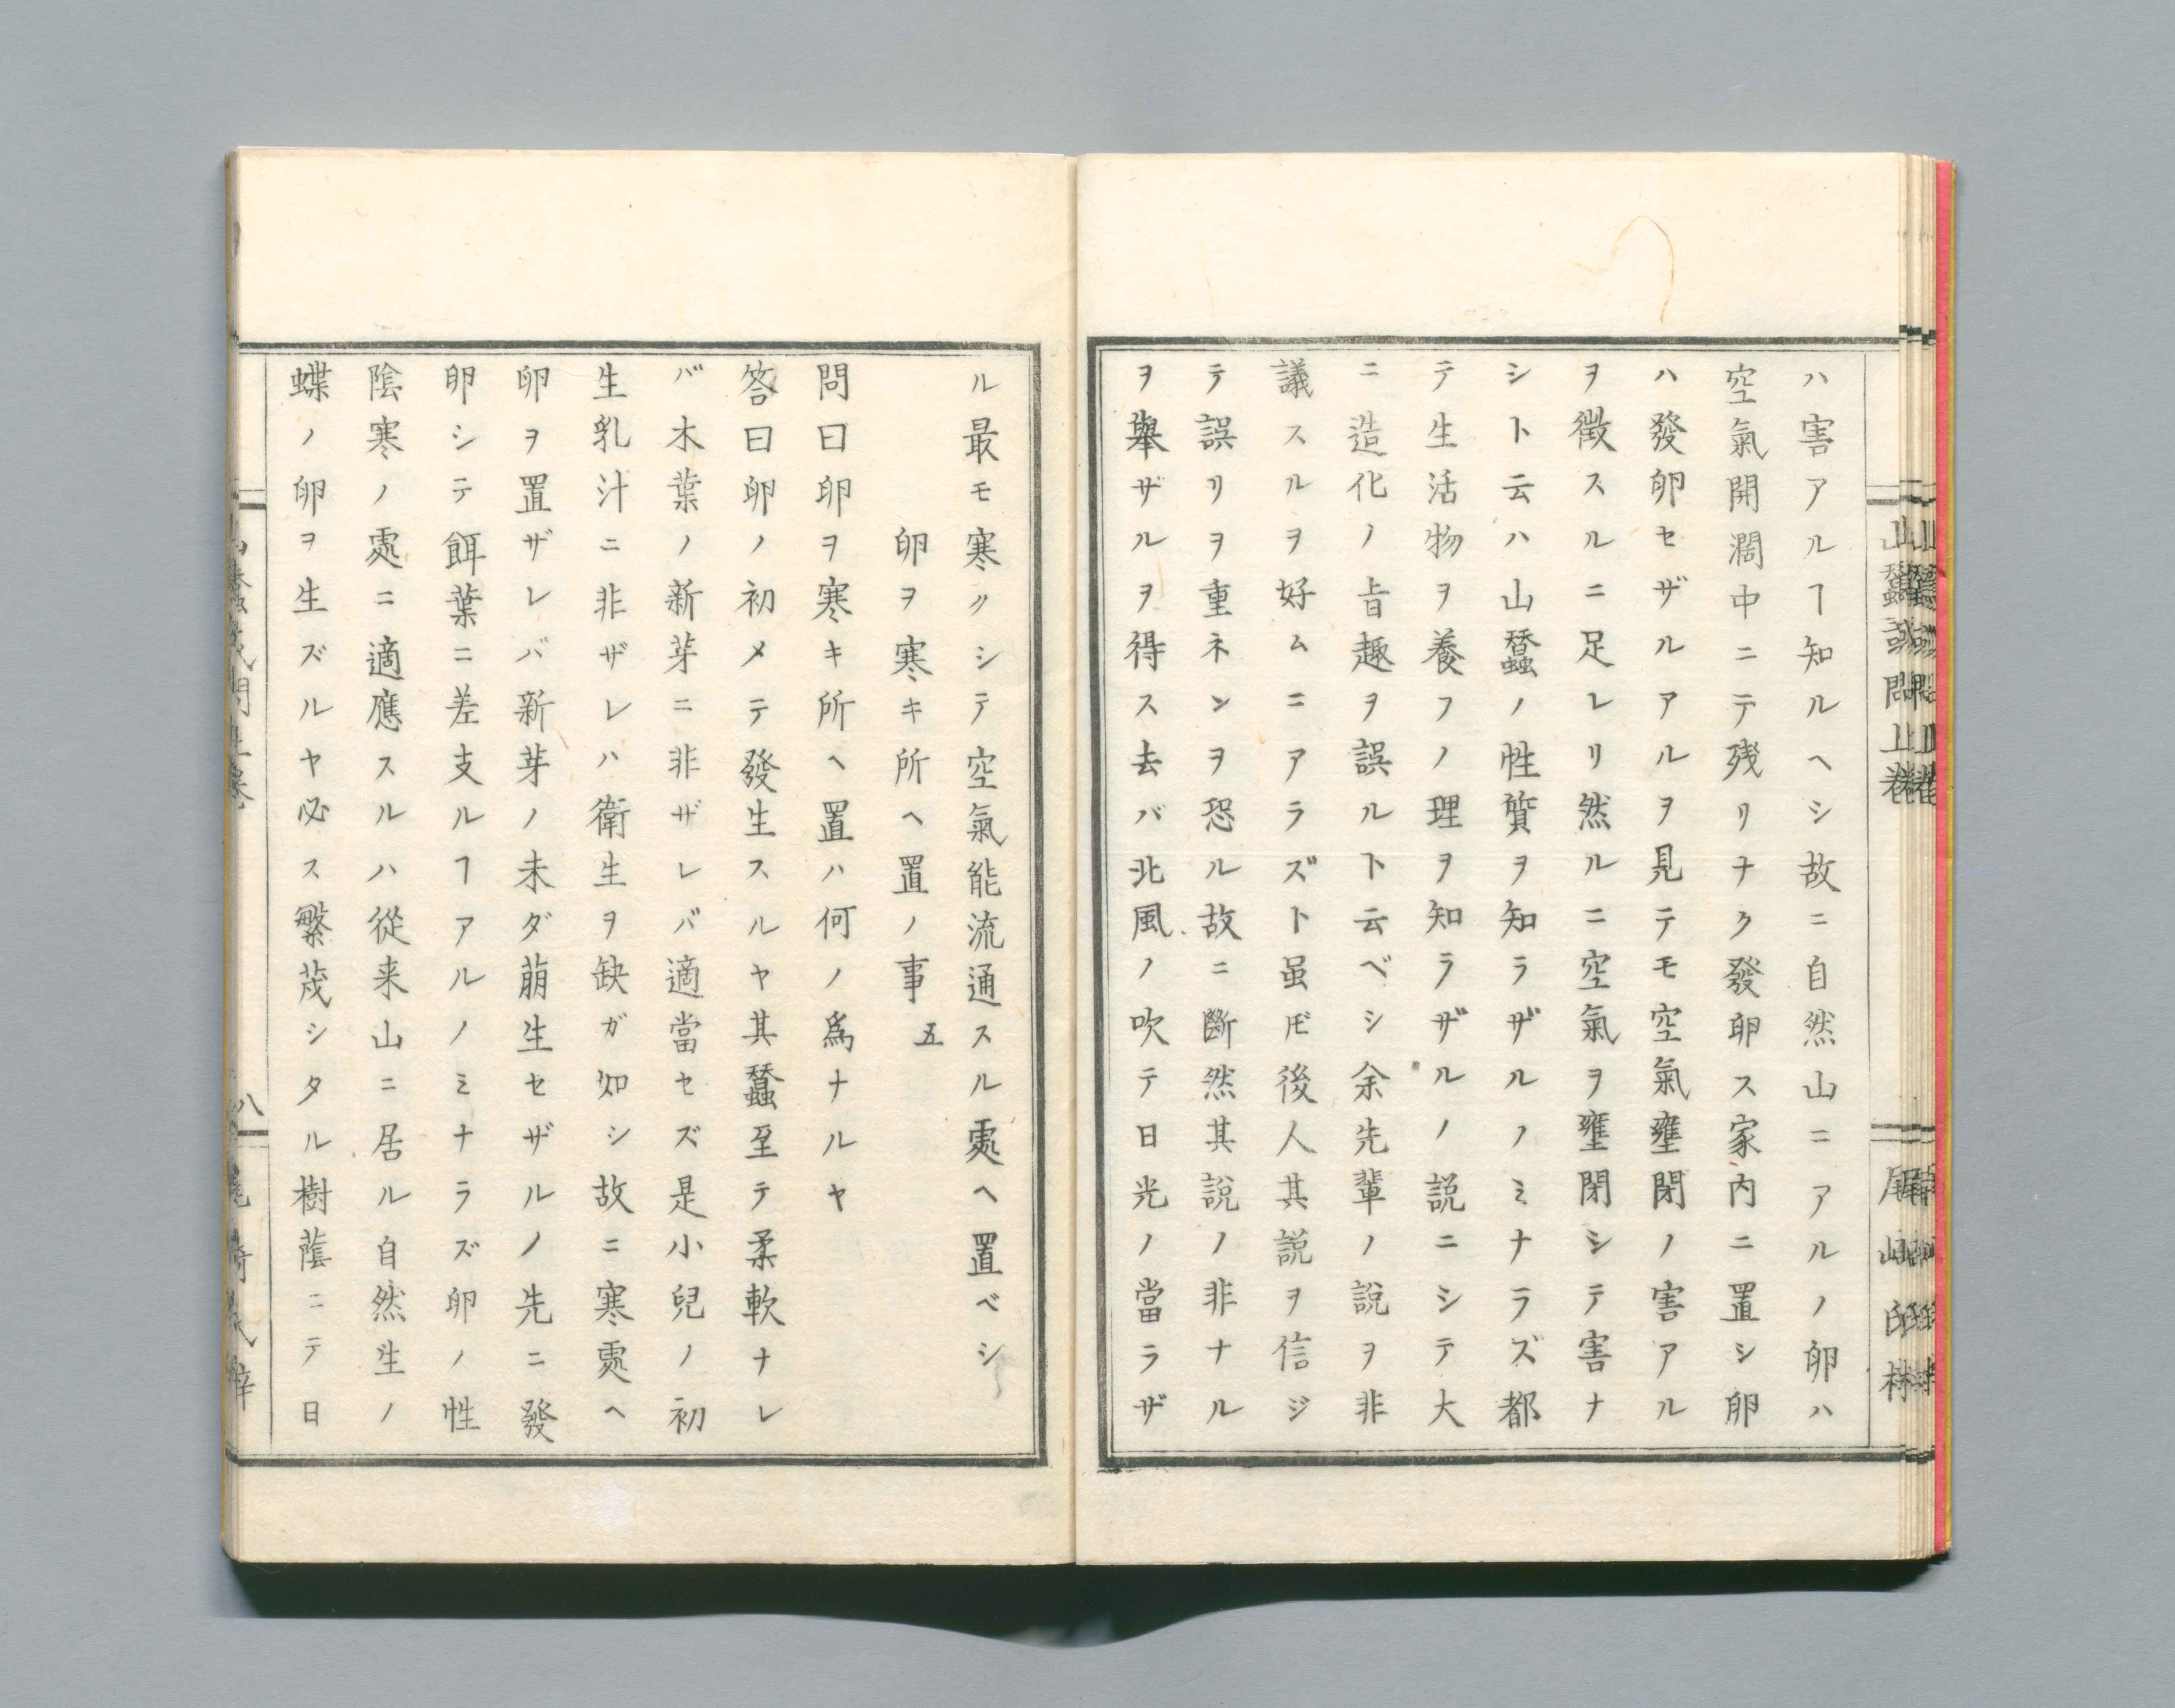 ハ害アルヿ知ルヘシ故ニ自然山ニアルノ卵ハ
空氣開濶中ニテ残リナク發卵ス家内ニ置シ卵
ハ發卵セザルアルヲ見テモ空氣壅閉ノ害アル
ヲ徴スルニ足レリ然ルニ空氣ヲ壅閉シテ害ナ
シト云ハ山蠶ノ性質ヲ知ラザルノミナラズ都
テ生活物ヲ養フノ理ヲ知ラザルノ説ニシテ大
ニ造化ノ旨趣ヲ誤ルト云ベシ余先輩ノ説ヲ非
議スルヲ好ムニアラズト虽𪜈後人其説ヲ信ジ
テ誤リヲ重ネンヲ恐ル故ニ斷然其説ノ非ナル
ヲ舉ザルヲ得ス去バ北風ノ吹テ日光ノ當ラザ
ル最モ寒クシテ空氣能流通スル處ヘ置ベシ
卵ヲ寒キ所ヘ置ノ事 五
問曰卵ヲ寒キ所ヘ置ハ何ノ爲ナルヤ
答曰卵ノ初メテ發生スルヤ其蠶至テ柔軟ナレ
バ木葉ノ新芽ニ非ザレバ適當セズ是小兒ノ初
生乳汁ニ非ザレハ衛生ヲ缺ガ如シ故ニ寒處ヘ
卵ヲ置ザレバ新芽ノ未ダ萠生セザルノ先ニ發
卵シテ餌葉ニ差支ルヿアルノミナラズ卵ノ性
陰寒ノ處ニ適應スルハ從来山ニ居ル自然生ノ
蝶ノ卵ヲ生ズルヤ必ス繁茂シタル樹蔭ニテ日
八